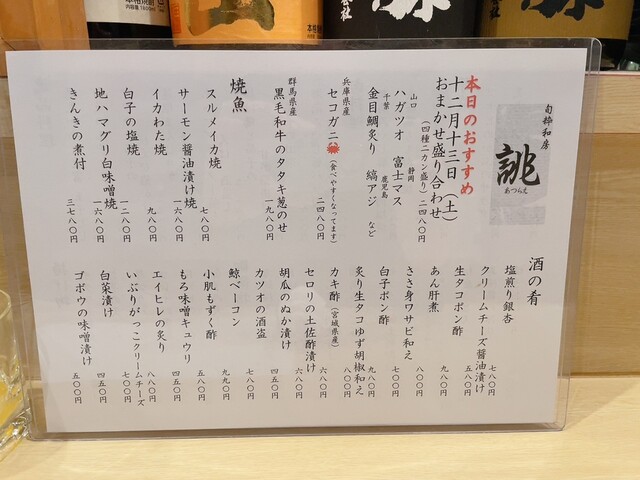 旬粋和房
誂
あつらえ
本日のおすすめ
十二月十三日(土)
おまかせ盛り合わせ
(四種二カン盛り)二四八〇円
山口 静岡
ハガツオ 富士マス
千葉 鹿児島
金目鯛炙り 縞アジ など
兵庫県産
セコガニ(食べやすくなってます)
二四八〇円
群馬県産
黒毛和牛のタタキ葱のせ
一九八〇円
焼魚
スルメイカ焼 七八〇円
サーモン醤油漬け焼 一六八〇円
イカわた焼 九八〇円
白子の塩焼 一二八〇円
地ハマグリ白味噌焼 一六八〇円
きんきの煮付 三七八〇円
酒の肴
塩煎り銀杏 七八〇円
クリームチーズ醤油漬け 五八〇円
生タコポン酢 九八〇円
あん肝煮 八〇〇円
ささ身ワサビ和え 七〇〇円
白子ポン酢 九八〇円
炙り生タコゆず胡椒和え 八〇〇円
カキ酢(宮城県産) 六八〇円
セロリの土佐酢漬け 六八〇円
胡瓜のぬか漬け 四五〇円
カツオの酒盗 七八〇円
鯨ベーコン 九九〇円
小肌もずく酢 五八〇円
もろ味噌キュウリ 四五〇円
エイヒレの炙り 八八〇円
いぶりがっこクリームチーズ 七〇〇円
白菜漬け 四五〇円
ゴボウの味噌漬け 五〇〇円